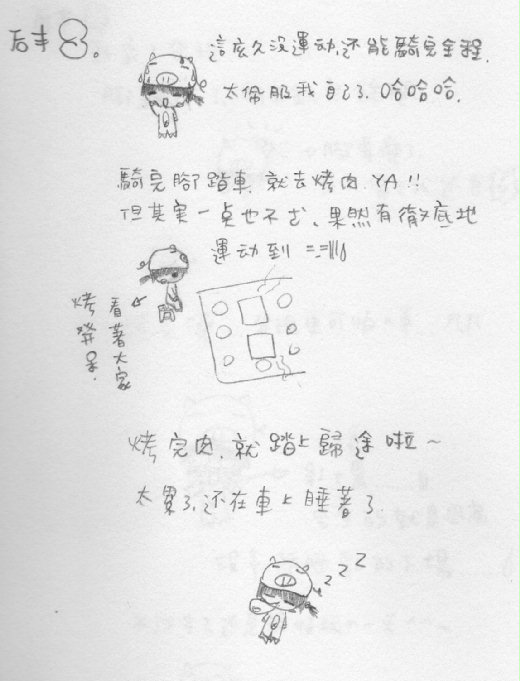 后丰8。
這広久沒運动,还能騎完全程,
太佩服我自己了.哈哈哈.
騎完腳踏車,就去烤肉.YA!!
但其実一点也不㐀、果然有徹底地
運动到 =_=|||
看著大家
烤
發呆.
烤完肉,就踏上歸途啦~
太累了,还在車上睡著了.
zzz